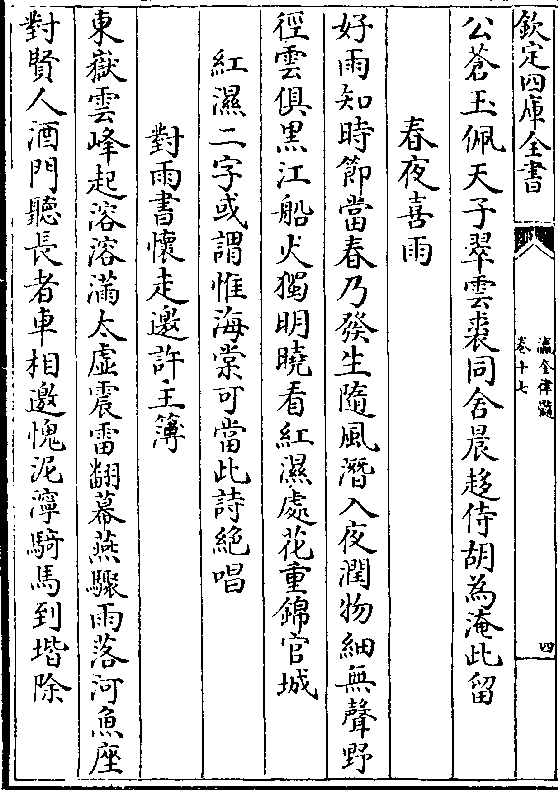 欽定四庫全書
瀛奎律髓
卷十七
四
公蒼玉佩天子翠雲裘同舍晨趍侍胡為淹此留
春夜喜雨
好雨知時節當春乃發生隨風潛入夜潤物細無聲野
徑雲俱黒江船火獨明曉看紅濕處花重錦官城
紅濕二字或謂惟海棠可當此詩絶唱
對雨書懷走邀許主簿
東嶽雲峰起溶溶滿太虛震雷翻幕燕驟雨落河魚座
對賢人酒門聽長者車相邀愧泥濘騎馬到堦除